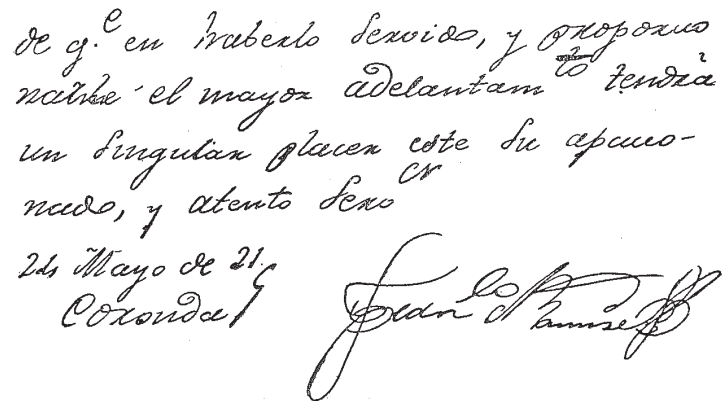 de q.e en haberlo servido, y proporcio
narle el mayor adelantamto tendrá
un singular placer este su apacio-
nado, y atento servor
24 Mayo de 21.
Coronda
Franco Ramirez